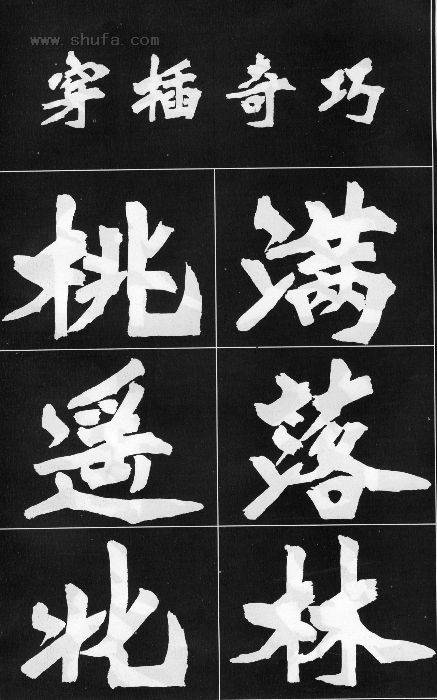 www.shufa.com
穿插奇巧
桃满
遥落
北林